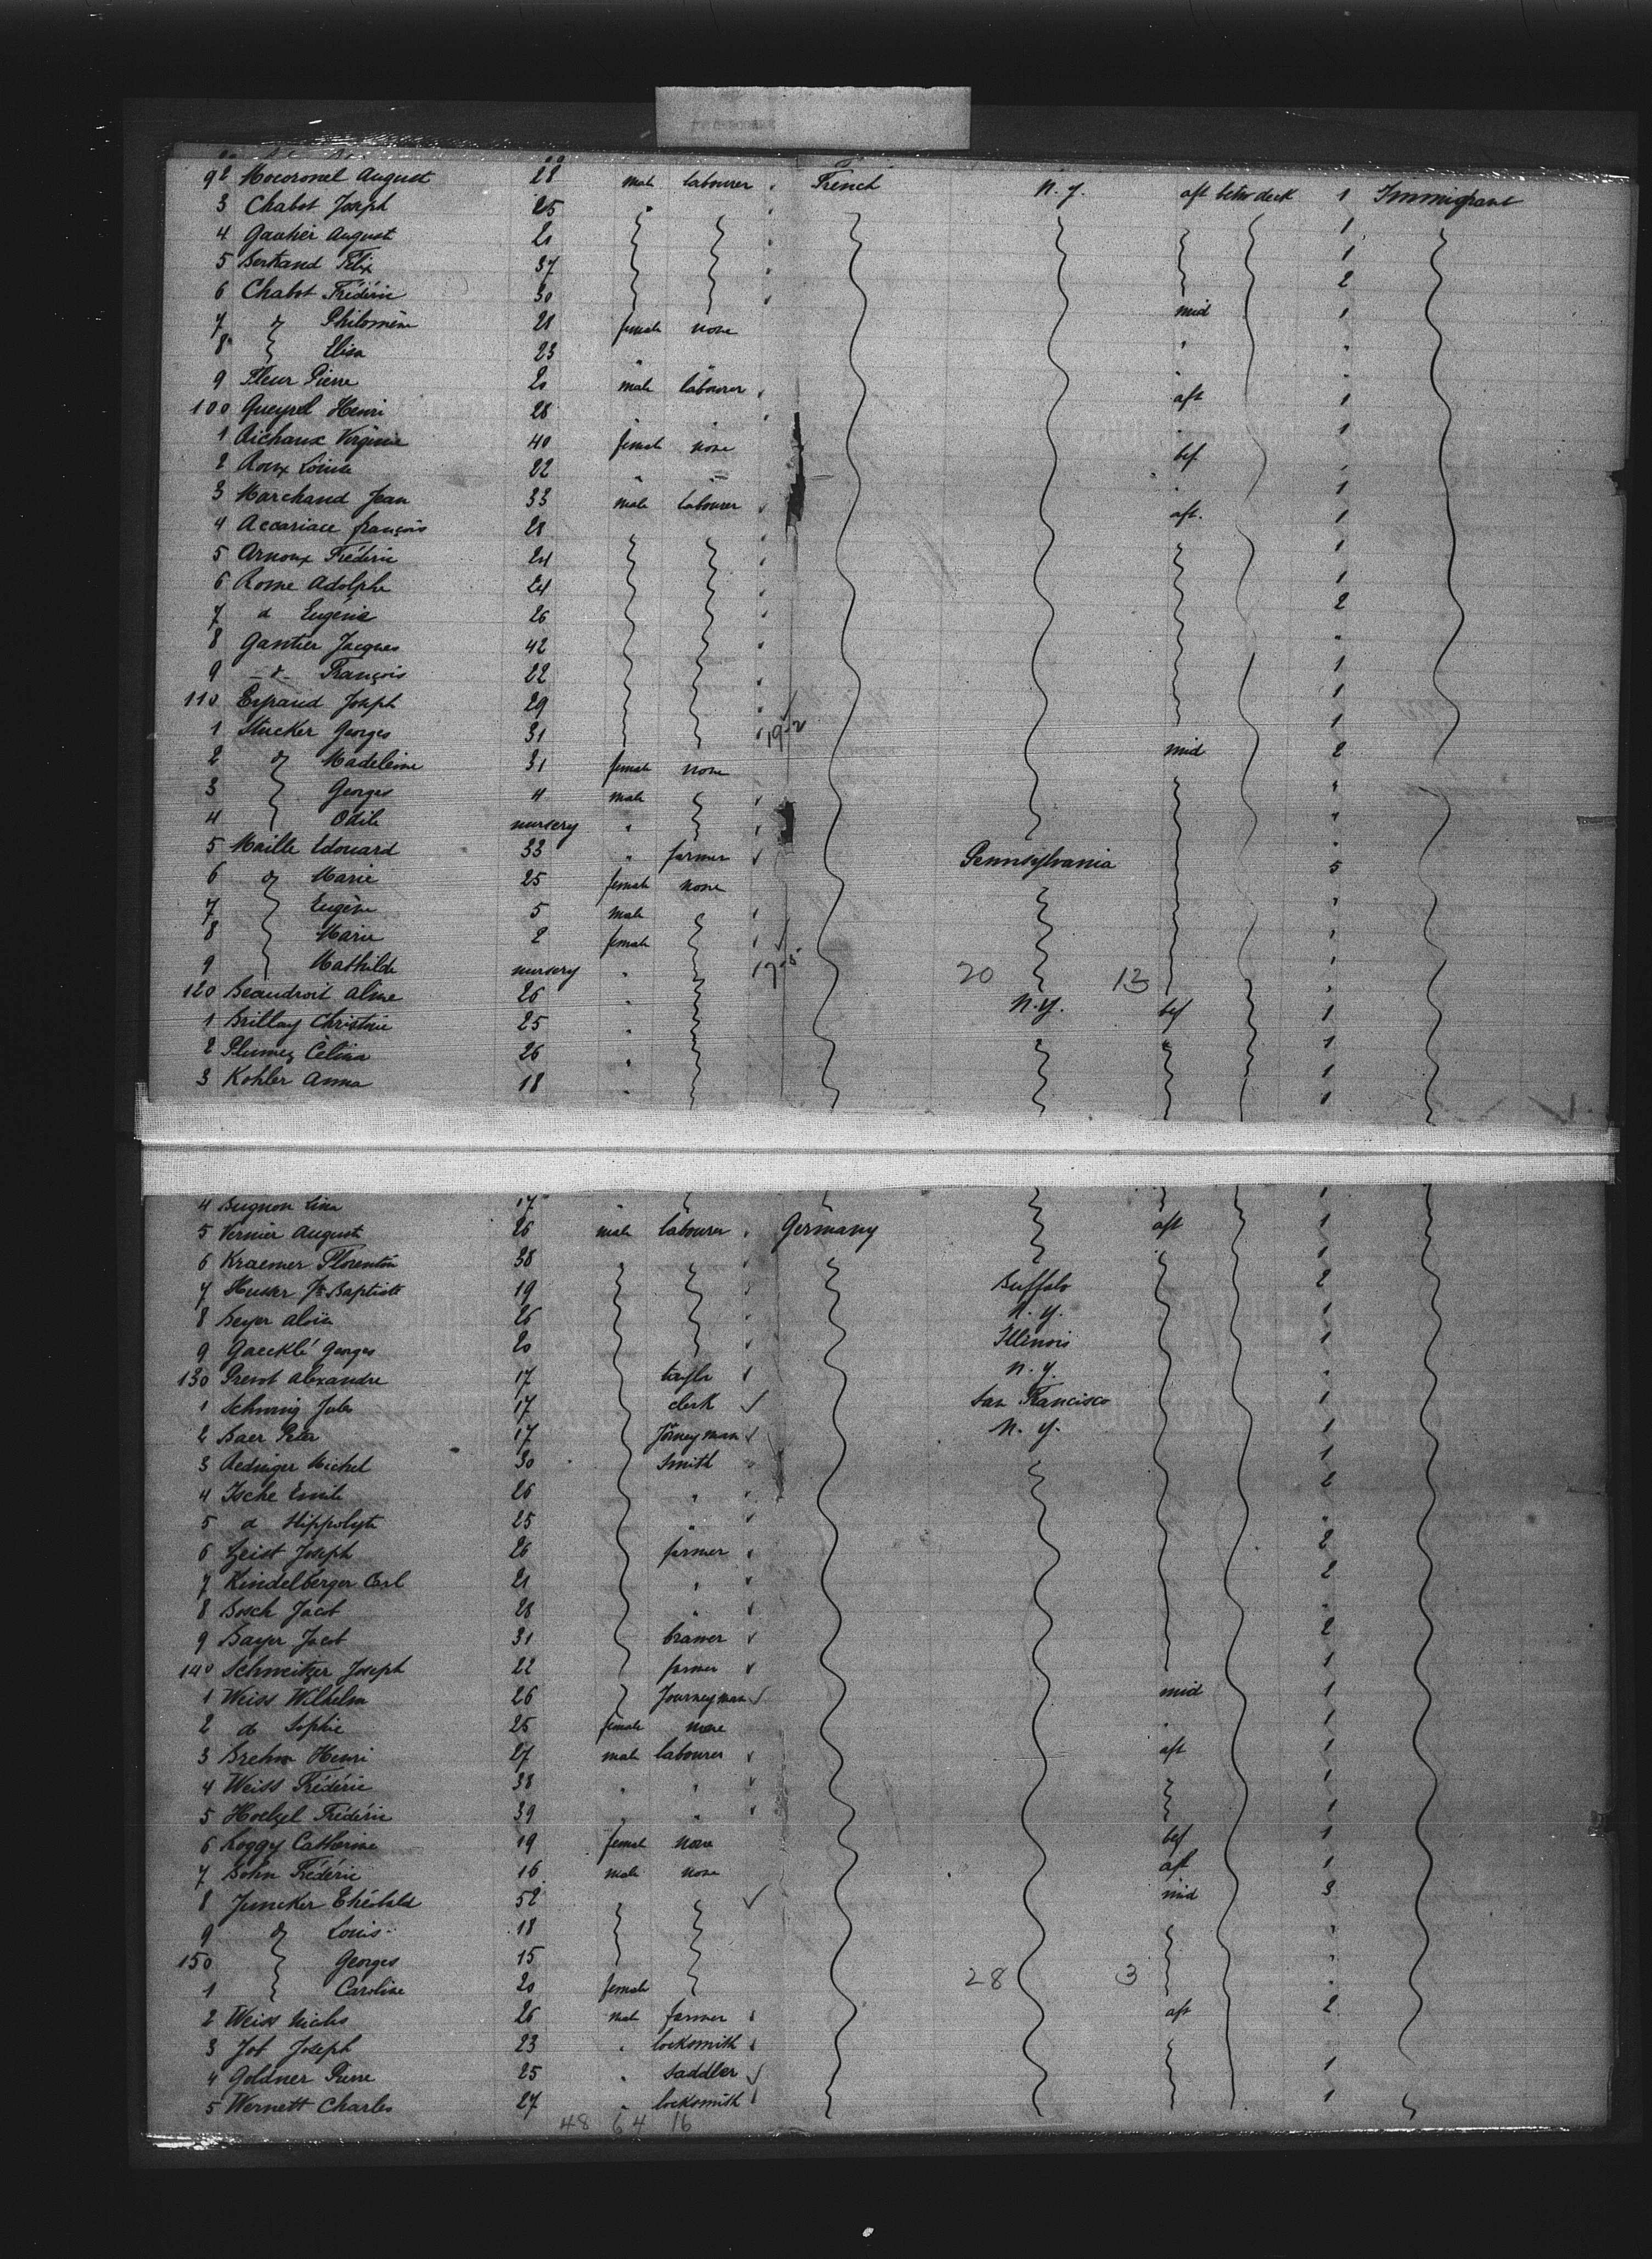 92 Mocoronel August 28 male labourer French N.Y. aft betw deck 1 Immigrant
3 Chabot Joseph 25 " 1
4 Gauhier August 20 1
5 Bertrand Félix 37 2
6 Chabot Frédéric 30 mid 1
7 do Philomène 28 female none "
8 Elisa 23 " " "
9 Fleur Pierre 20 male labourer aft 1
100 Gueyrel Henri 28 " " " 1
1 Aichaux Virginie 40 female none bef
2 Roux Louise 22 " " " 1
3 Marchand Jean 33 male labourer aft. 1
4 Accariace françois 28 1
5 Arnoux Frédéric 24 1
6 Rome Adolphe 24 2
7 d Eugénie 26 "
8 Gantier Jacques 42 1
9 -d- François 22 1
110 Espraud Joseph 29 1
1 Stucker Georges 31 mid 2
2 do Madeleine 31 female none "
3 Georges 4 male "
4 Odile nursery " "
5 Maille Edouard 33 " farmer Pennsylvania 5
6 do Marie 25 female none "
7 Eugène 5 male "
8 Marie 2 female "
9 Mathilde nursery " 20 13 "
120 Beaudroit Aline 26 " N.Y. bef 1
1 Brillay Christine 25 " 1
2 Plumez Célina 26 " 1
3 Kohler Anna 18 " 1
4 Bugnon Lina 17 " 1
5 Vernier August 26 male labourer Germany aft 1
6 Kraemer Florentin 38 " 1
7 Husser Jn Baptiste 19 Buffalo 2
8 Beyer Aloïse 26 N.Y. 1
9 Gaecklé Georges 20 Illinois 1
130 Prevot Alexandre 17 taylor N.Y. "
1 Schwing Jules 17 clerk San Francisco 1
2 Baer Peter 17 Jorneyman N.Y. 1
3 Aedinger Michel 30 Smith 1
4 Tsche Emile 26 " 2
5 d Hippolyte 25 " "
6 Zeist Joseph 26 farmer 2
7 Kindelberger Carl 21 " 2
8 Bosch Jacob 28 " "
9 Bayer Jacob 31 brawer 2
140 Schweitzer Joseph 22 farmer 1
1 Weiss Wilhelm 26 Journeyman mid 1
2 do Sophie 25 female none " 1
3 Brehm Henri 27 male labourer aft 1
4 Weiss Frédéric 38 " " 1
5 Hoelzel Frédéric 39 " " 1
6 Roggy Catherine 19 female none bef 1
7 Bohn Frédéric 16 male none aft 1
8 Juncker Théobald 52 mid 3
9 do Louis 18 "
150 Georges 15 "
1 Caroline 20 female 28 3 "
2 Weiss Michs 26 male farmer aft 2
3 Jot Joseph 23 " locksmith
4 Goldner Pierre 25 " saddler 1
5 Wernett Charles 27 " locksmith 1
48 64 16